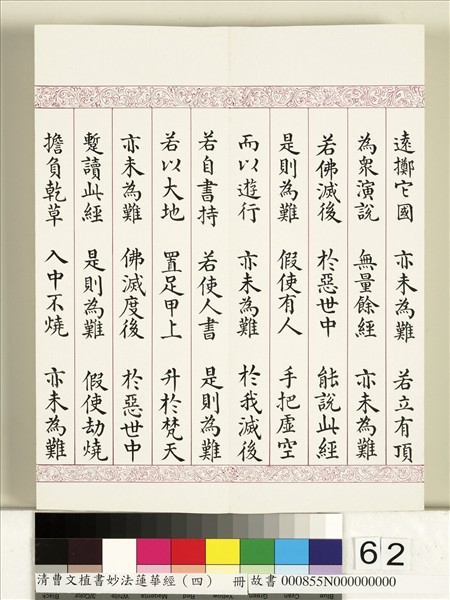 遠擲它國 亦未為難 若立有頂
為衆演說 無量餘經 亦未為難
若佛滅後 於惡世中 能說此經
是則為難 假使有人 手把虛空
而以遊行 亦未為難 於我滅後
若自書持 若使人書 是則為難
若以大地 置足甲上 升於梵天
亦未為難 佛滅度後 於惡世中
蹔讀此經 是則為難 假使劫燒
擔負乾草 入中不燒 亦未為難
62
清曹文植書妙法蓮華經(四) 冊 故書 000855N000000000